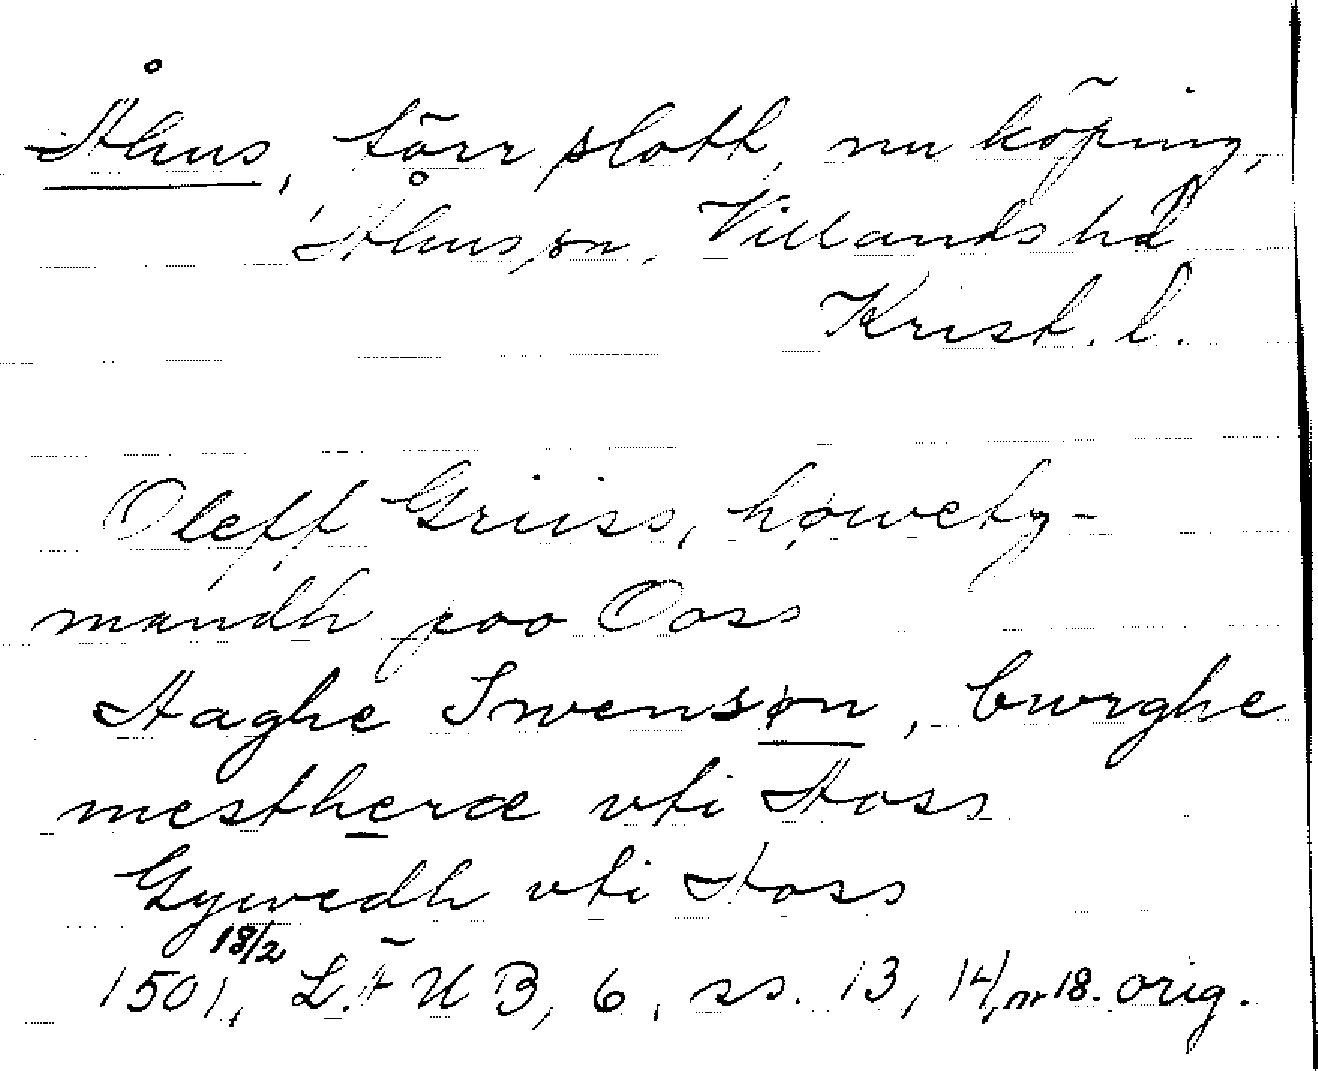 Åhus, förr slott, nu köping,
Åhus sn, Villands hd
Krist. l.
Oleff Griiss, høwety-
mandh poo Ooss
Aaghe Swensøn, burghe
mestheræ vti Aoss
Gywedh vti Aoss
1501 18/2, L.Ä U B, 6, ss. 13, 14, nr 18. orig.